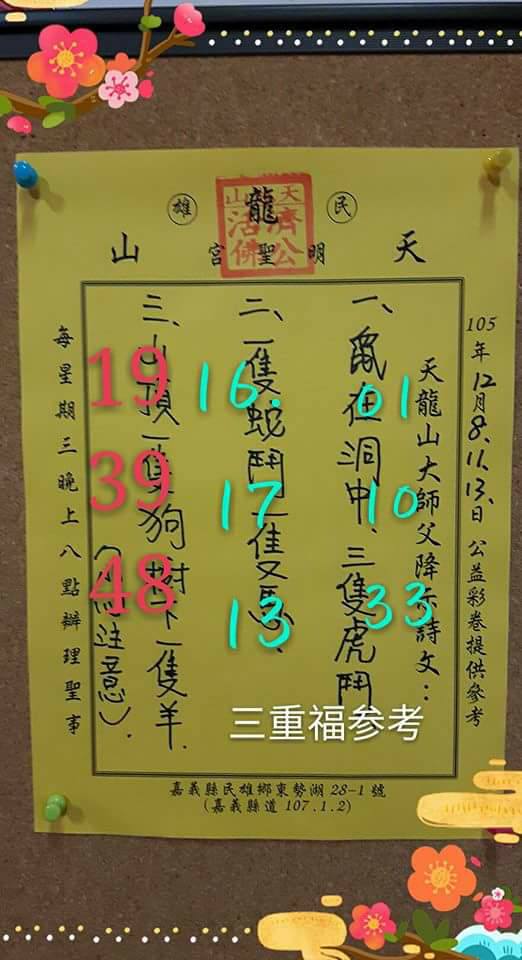 民 龍 雄
天 明聖宮 山
天山
濟公
活佛
105年12月8.11.13.日 公益彩卷提供參考
天龍山大師父降示詩文：
一、鼠在洞中、三隻虎鬥
二、一隻蛇鬥一隻馬、
三、山頂一隻狗樹下一隻羊.
注意）.
每星期三晚上八點辦理聖事
01
10
33
16.
17
13
19
39
48
三重福参考
嘉義縣民雄鄉東勢湖 28-1 號
(嘉義縣道 107.1.2)